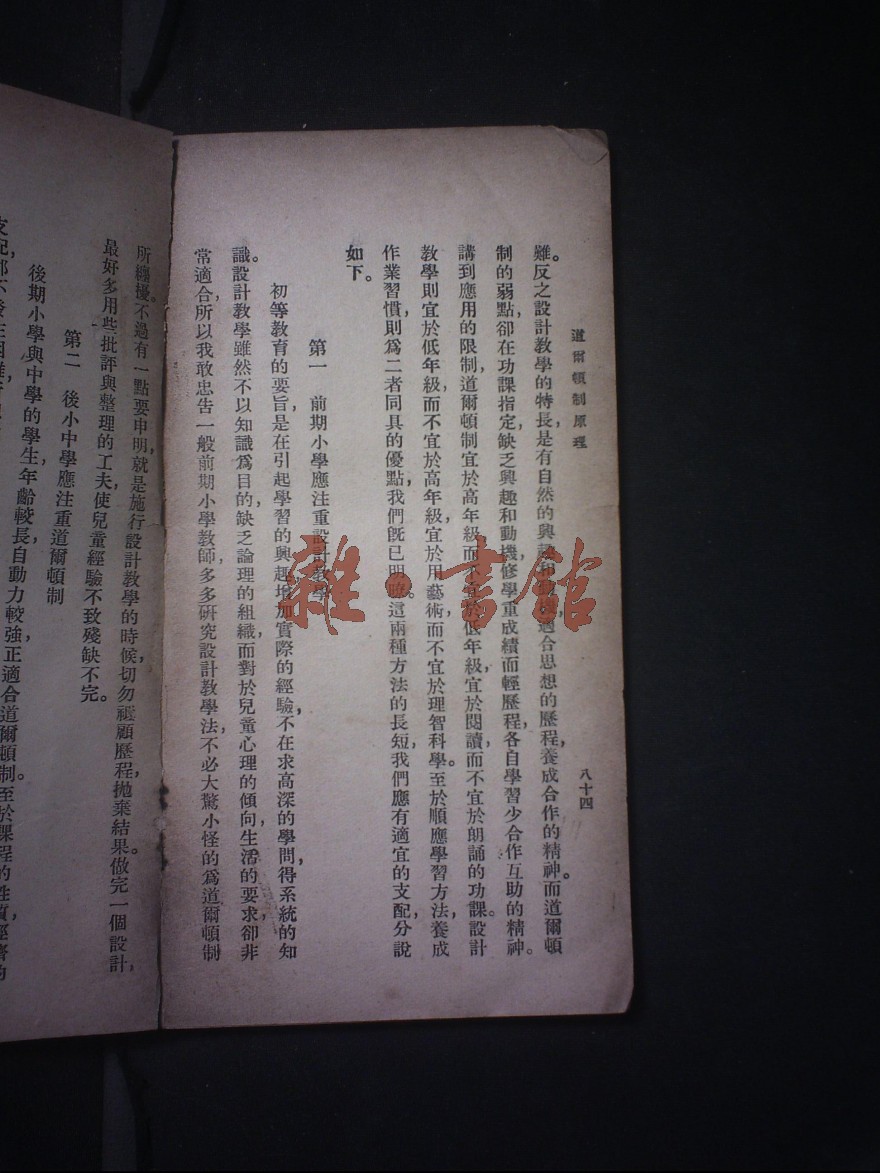 道爾頓制原理
八十四
難。反之設計教學的特長，是有自然的興趣和動機，適合思想的歷程，養成合作的精神。而道爾頓
制的弱點，卻在功課指定，缺乏興趣和動機，修學重成績而輕歷程，各自學習，少合作互助的精神。
講到應用的限制，道爾頓制宜於高年級而不宜於低年級，宜於閱讀，而不宜於朗誦的功課。設計
教學則宜於低年級，而不宜於高年級，宜於用藝術而不宜於理智科學。至於順應學習方法，養成
作業習慣，則爲二者同具的優點，我們旣已明瞭。這兩種方法的長短，我們應有適宜的支配，分說
如下。
第一　前期小學應注重設計教學
初等教育的要旨，是在引起學習的興趣，增加實際的經驗，不在求高深的學問，得系統的知
識。設計教學雖然不以知識爲目的，缺乏論理的組織，而對於兒童心理的傾向，生活的要求，卻非
常適合，所以我敢忠告一般前期小學教師，多多硏究設計教學法，不必大驚小怪的爲道爾頓制
所纏擾。不過有一點要申明，就是施行設計教學的時候，切勿祗顧歷程，拋棄結果。做完一個設計，
最好多用些批評與整理的工夫，使兒童經驗不致殘缺不完。
第二　後小中學應注重道爾頓制
後期小學與中學的學生，年齡較長，自動力較強，正適合道爾頓制。至於課程的性質，經濟的
支配，都不發生困難，
雜·書館